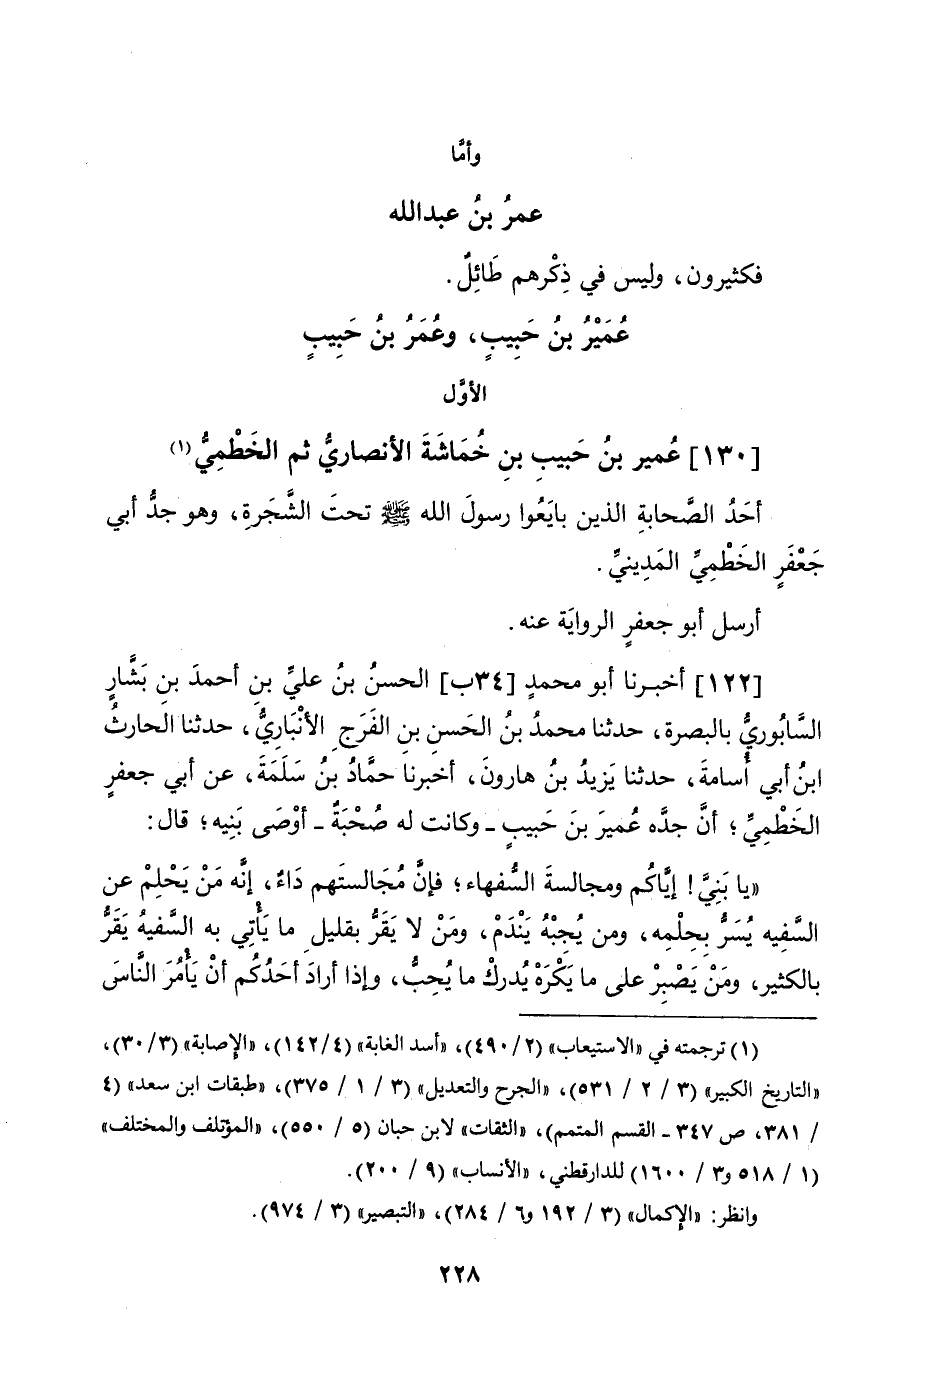 وأمَّا
عمرُ بنُ عبدالله
فكثيرون، وليس في ذِكْرهم طَائِلٌ.
عُمَيْرُ بنُ حَبِيبٍ، وعُمَرُ بنُ حَبِيبٍ
الأوَّل
[١٣٠] عُمير بنُ حَبيبِ بنِ خُمَاشَةَ الأنصاريُّ ثم الخَطْمِيُّ(١)
أحَدُ الصَّحابةِ الذين بايَعُوا رسولَ الله ﷺ تحتَ الشَّجَرةِ، وهو جدُّ أبي
جَعْفَرٍ الخَطْمِيِّ المَدِينيِّ.
أرسل أبو جعفرٍ الروايَة عنه.
[١٢٢] أخبرنا أبو محمدٍ [٣٤ب] الحسنُ بنُ عليِّ بنِ أحمدَ بنِ بَشَّارٍ
السَّابُوريُّ بالبصرة، حدثنا محمدُ بنُ الحَسنِ بنِ الفَرَجِ الأنْبَاريُّ، حدثنا الحارثُ
ابنُ أبي أُسامةَ، حدثنا يَزيدُ بنُ هارونَ، أخبرنا حمَّادُ بنُ سَلَمَةَ، عن أبي جعفرٍ
الخَطْمِيِّ؛ أنَّ جدَّه عُميرَ بنَ حَبيبٍ ـ وكانت له صُحْبَةٌ ـ أوْصَى بَنِيه؛ قال:
«يا بَنِيَّ! إيَّاكُم ومجالسةَ السُّفهاء؛ فإنَّ مُجَالستَهم دَاءٌ، إنَّه مَنْ يَحْلِمْ عن
السَّفِيه يُسَرُّ بِحلْمِه، ومن يُجِبْهُ يَنْدَمْ، ومَنْ لا يَقَرُّ بقليلِ ما يَأْتِي به السَّفيهُ يَقَرُّ
بالكثير، ومَنْ يَصْبِرْ على ما يَكْرَهْ يُدركْ ما يُحِبُّ، وإذا أرادَ أحَدُكُم أنْ يَأْمُرَ النَّاسَ
(١) ترجمته في «الاستيعاب» (٤٩٠/٢)، «أسد الغابة» (١٤٢/٤)، «الإصابة» (٣٠/٣)،
«التاريخ الكبير» (٣ / ٢ / ٥٣١)، «الجرح والتعديل» (٣ / ١ / ٣٧٥)، «طبقات ابن سعد» (٤
/ ٣٨١، ص ٣٤٧ ـ القسم المتمم)، «الثقات» لابن حبان (٥ / ٥٥٠)، «المؤتلف والمختلف»
(١ / ٥١٨ و٣ / ١٦٠٠) للدارقطني، «الأنساب» (٩ / ٢٠٠).
وانظر: «الإكمال» (٣ / ١٩٢ و٦ / ٢٨٤)، «التبصير» (٣ / ٩٧٤).
٢٢٨